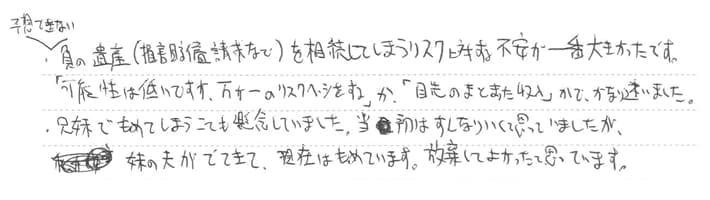 予想できない
・負の遺産(損害賠償請求など)を相続してしまうリスクに対する不安が一番大きかったです。
「可能性は低いですが、万が一のリスクヘッジをする」か、「目先のまとまった収入」かで、かなり迷いました。
・兄妹でもめてしまうことも懸念していました。当初はすんなりいくと思っていましたが、
妹の夫がでてきて、現在はもめています。放棄してよかったと思っています。